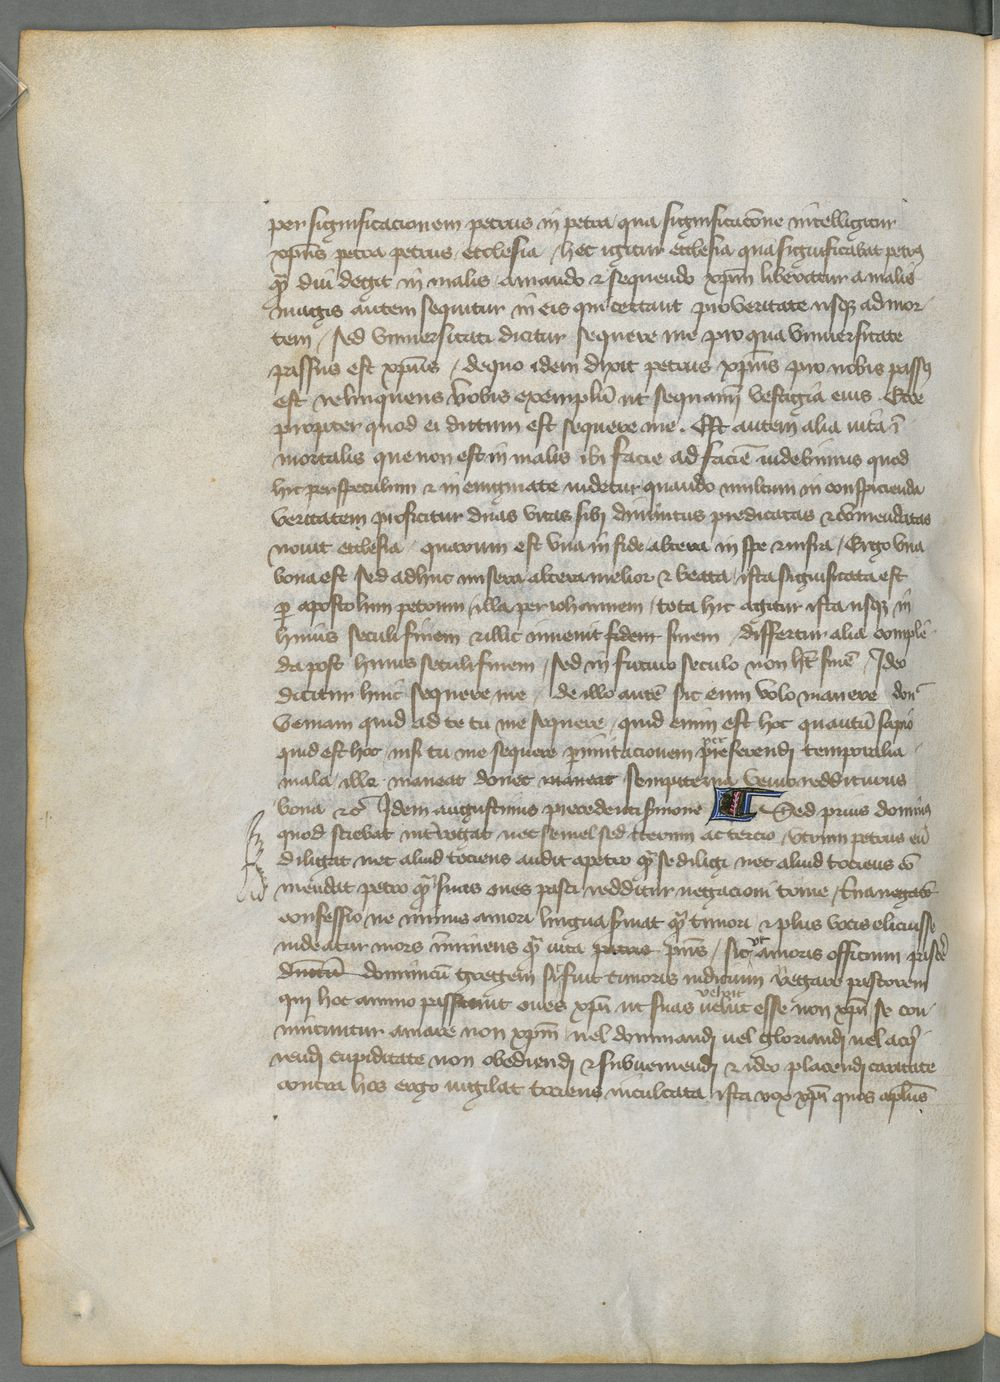 per significacionem petrus in petra qua significacōne intelligitur
xp̄us petra petrus ecclesia / hec igitur ecclesia qua significabat petrus
q̄ diu degit in malis amando & sequendo xp̄m liberatur a malis
magis autem sequitur in eis qui certant pro veritate usq; ad mor-
tem / sed vniuersitati dicitur sequere me pro qua vniuersitate
passus est xp̄us / de quo idem dixit petrus xp̄us pro nobis passus
est relinquens vobis exemplū ut sequamī vestigia eius . Ecce
propter quod ei dictum est sequere me . Est autem alia uita ī
mortalis que non est in malis ibi facie ad faciē uidebimus quod
hic per speculum & in enigmate uidetur quando multum in conspicienda
veritatem proficitur duas vitas sibj diuinitus predicatas & cōmendatas
nouit ecclesia . quarum est vna in fide altera in spe & infra / Ergo vna
bona est sed adhuc misera altera melior & beata / ista significata est
per apostolum petrum / illa per iohannem / tota hic agitur ista usq; in
huius seculi finem & illic inuenit fidem finem . differtur alia complē
da post huius seculi finem / sed in futuro seculo non h̄t finē / Ideo
dicitur huic sequere me / de illo autē sic eum volo manere don̄
veniam quid ad te tu me sequere . quid enim est hoc quantū sapio
quid est hoc nisi tu me sequere per imitacionem per referendj temporalia
mala / ille maneat donec maneat sempiterna venio redditurus
bona &c̄ Idem augustinus precedenti s̄mone Sed prius dominus
quod sciebat int̄rogat nec semel sed iterum ac tercio / vtrum petrus eū
diligat nec aliud tociens audit a petro q̄ se diligi nec aliud tociens cō
mendat petro q̄ suas oues pasci redditur negacioni trine / t̄na negat̄
confessio ne minus amori lingua s̄uiat q̄ timori & plus vocis elicuisse
uideatur mors īminens q̄ uita petrus p̄ns / sit amoris officium pascē
dn̄icū dominicū gregem si fuit timoris iudicium negare pastorem
qui hoc animo pascunt oues xp̄i ut suas velint uelut esse non xp̄i se con-
uincuntur amare non xp̄m / uel dominandj uel gloriandj uel acq̄
rendj cupiditate non obediendj & subueniendj & ideo placendj caritate
contra hos ergo uigilat tociens inculcata ista vox xp̄i quos ap̄lus